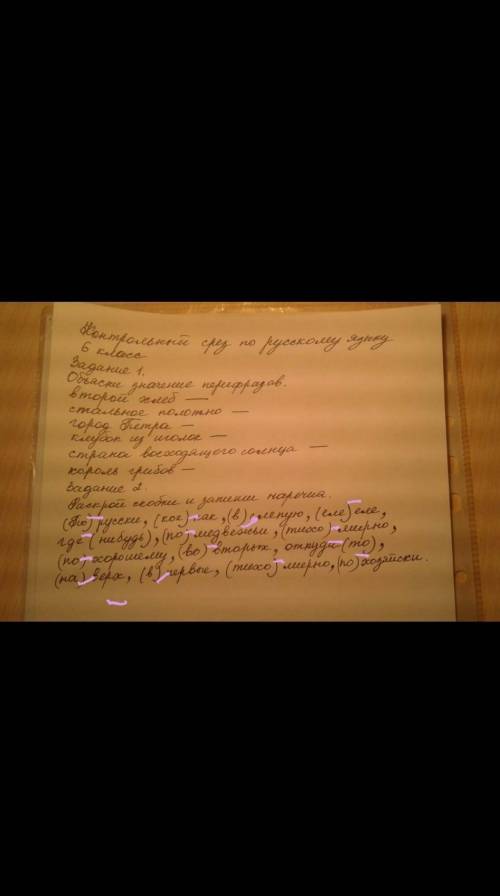 Контрольный срез по русскому языку
6 класс
Задание 1.
Объясни значение перифразов.
второй хлеб —
стальное полотно —
город Петра —
клубок из иголок —
страна восходящего солнца —
король грибов —
Задание 2.
Раскрой скобки и запиши наречия.
(По) русски, (кое) как, (в) слепую, (еле) еле,
где (нибудь), (по) медвежьи, (тихо) мирно,
(по) хорошему, (во) вторых, откуда (то),
(на) верх, (в) первые, (тихо) мирно, (по) хозяйски.